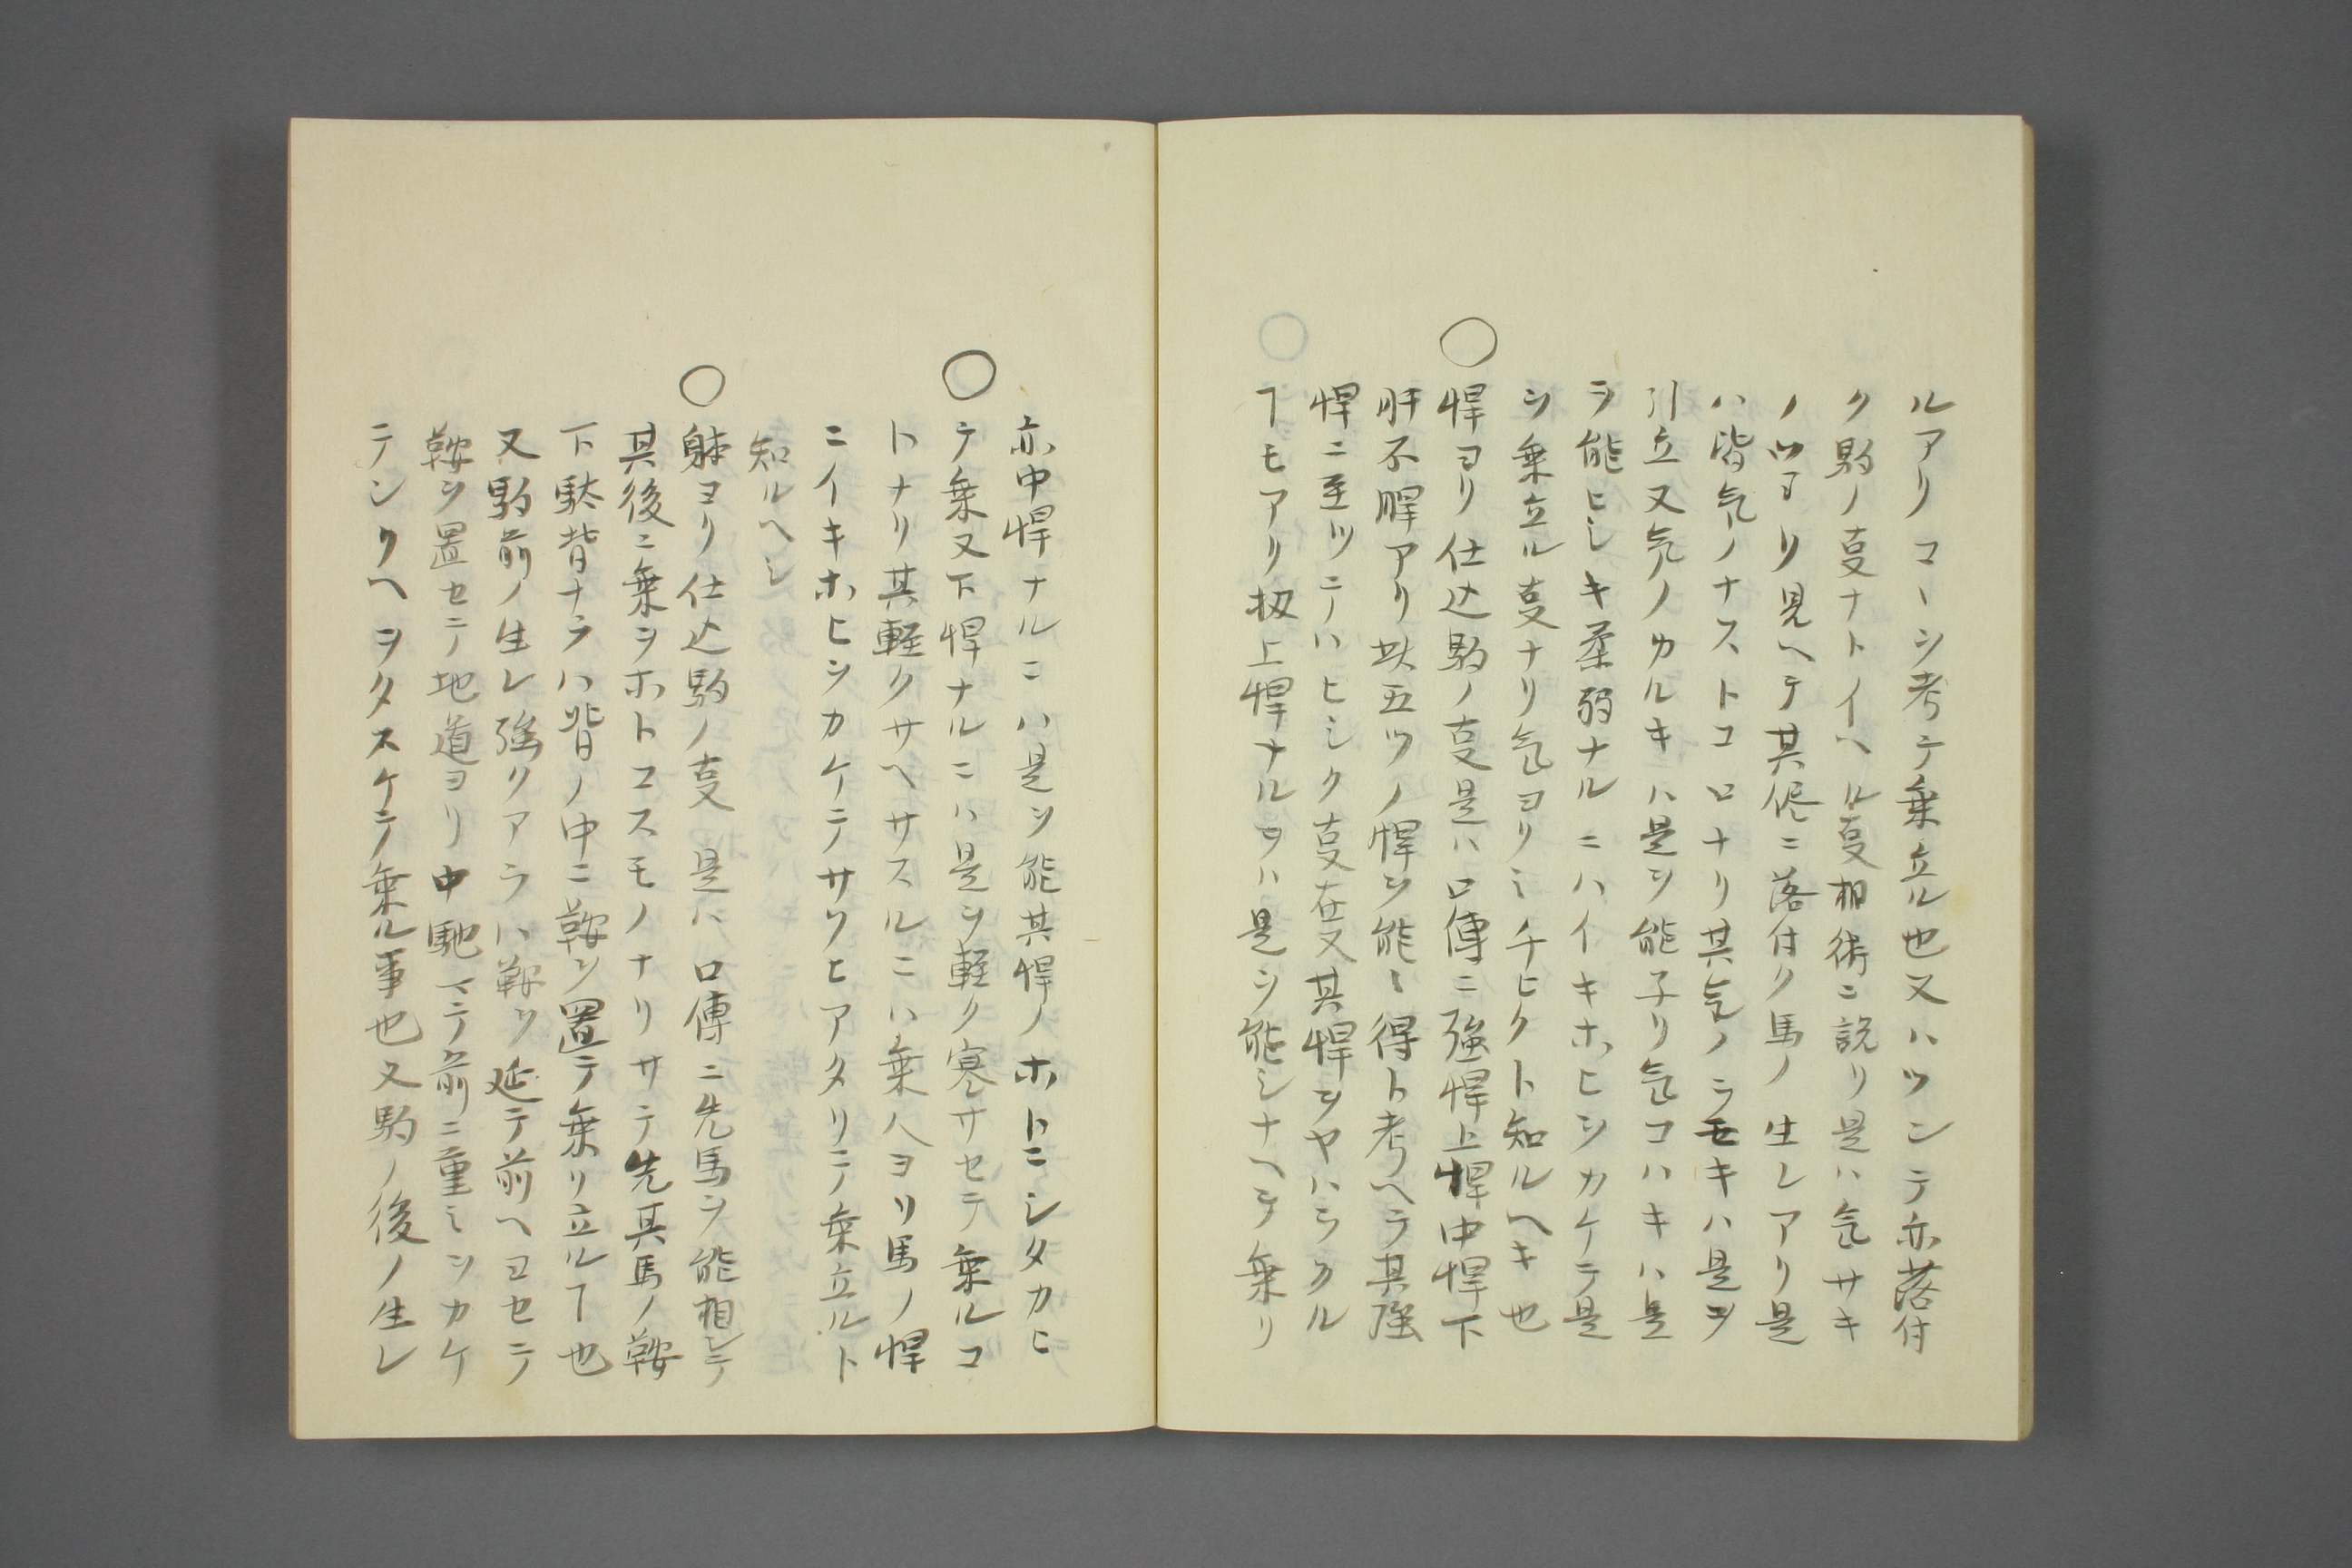 ルアリコヽヲ考テ乗立ル也又ハツンテ亦落付
ク駒ノ㕝ナトイヘル㕝相術ニ説リ是ハ気サキ
ノツヨリ見ヘテ其侭ニ落付ク馬ノ生レアリ是
ハ皆気ノナストコロナリ其気ノヲモキハ是ヲ
引立又気ノカルキハ是ヲ能子リ気コハキハ是
ヲ能ヒシキ柔弱ナルニハイキホヒヲカケテ是
ヲ乗立ル㕝ナリ気ヨリミチヒクト知ルヘキ也
〇悍ヨリ仕込駒ノ㕝是ハ口傳ニ強悍上悍中悍下
肝不悍アリ此五ツノ悍ヲ能〻得ト考ヘテ其強
悍ニ至ツテハヒシク㕝在又其悍ヲヤハラクル
ヿモアリ扨上悍ナルヲハ是ヲ能シナヘテ乗リ
亦中悍ナルニハ是ヲ能其悍ノホトニシタカヒ
〇テ乗又下悍ナルニハ是ヲ軽ク寒サセテ乗ルコ
トナリ其軽クサヘサスルニハ乗人ヨリ馬ノ悍
ニイキホヒヲカケテサソヒアタリテ乗立ルト
知ルヘシ
〇躰ヨリ仕込駒ノ㕝是ハ口傳ニ先馬ヲ能相シテ
其後ニ乗ヲホトコスモノナリサテ先其馬ノ鞍
下駄背ナラハ背ノ中ニ鞍ヲ置テ乗リ立ルヿ也
又駒前ノ生レ強クアラハ鞍ヲ延テ前ヘヨセテ
鞍ヲ置セテ地道ヨリ中馳マテ前ニ重ミヲカケ
テンクヘヲタスケテ乗ル事也又駒ノ後ノ生レ